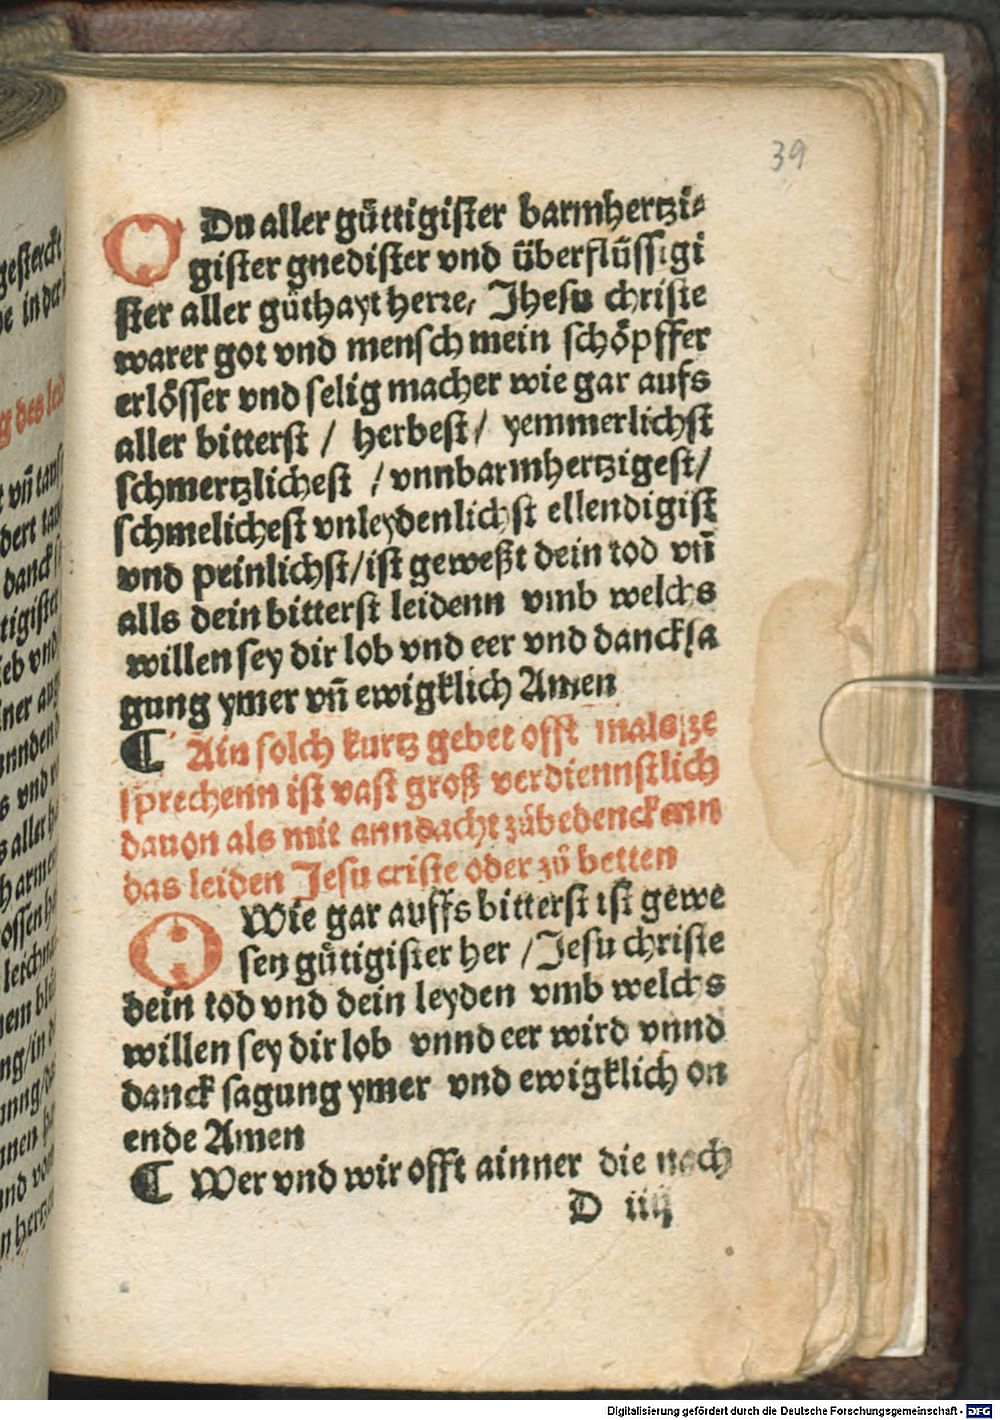 39
O Du aller gůttigister barmhertzi⸗
gister gnedister vnd überflüssigi
ster aller gůthayt herre, Jhesu christe
warer got vnd mensch mein schöpffer
erlösser vnd selig macher wie gar aufs
aller bitterst / herbest / yemmerlichst
schmertzlichest / vnnbarmhertzigest /
schmelichest vnleydenlichst ellendigist
vnd peinlichst / ist geweßt dein tod vñ
alls dein bitterst leidenn vmb welchs
willen sey dir lob vnd eer vnd dancksa
gung ymer vñ ewigklich Amen
¶ Ain solch kurtz gebet offt mals ze
sprechenn ist vast groß verdiennstlich
dauon als mit anndacht zůbedenckenn
das leiden Jesu criste oder zů betten
O Wie gar auffs bitterst ist gewe
sen gůtigister her / Jesu christe
dein tod vnd dein leyden vmb welchs
willen sey dir lob vnnd eer wird vnnd
danck sagung ymer vnd ewigklich on
ende Amen
¶ Wer vnd wir offt ainner die nach
D iiij
Digitalisierung gefördert durch die Deutsche Forschungsgemeinschaft - DFG